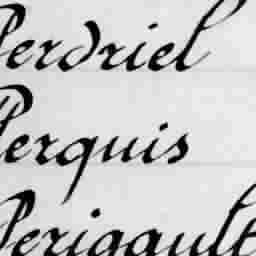 Perdriel
Perquis
Perigault